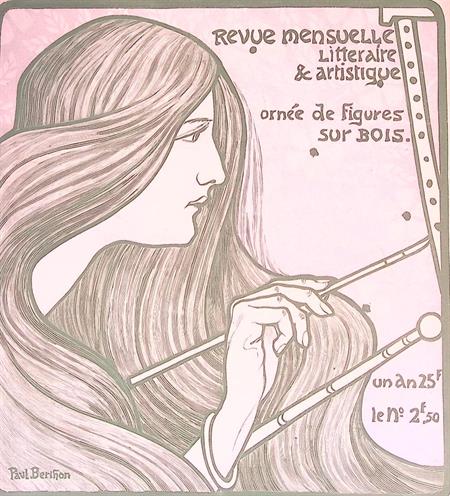 Revue mensuelle
Litteraire
& artistique
ornée de figures
sur BOIS.
un an 25F
le No 2F,50
Paul Berthon